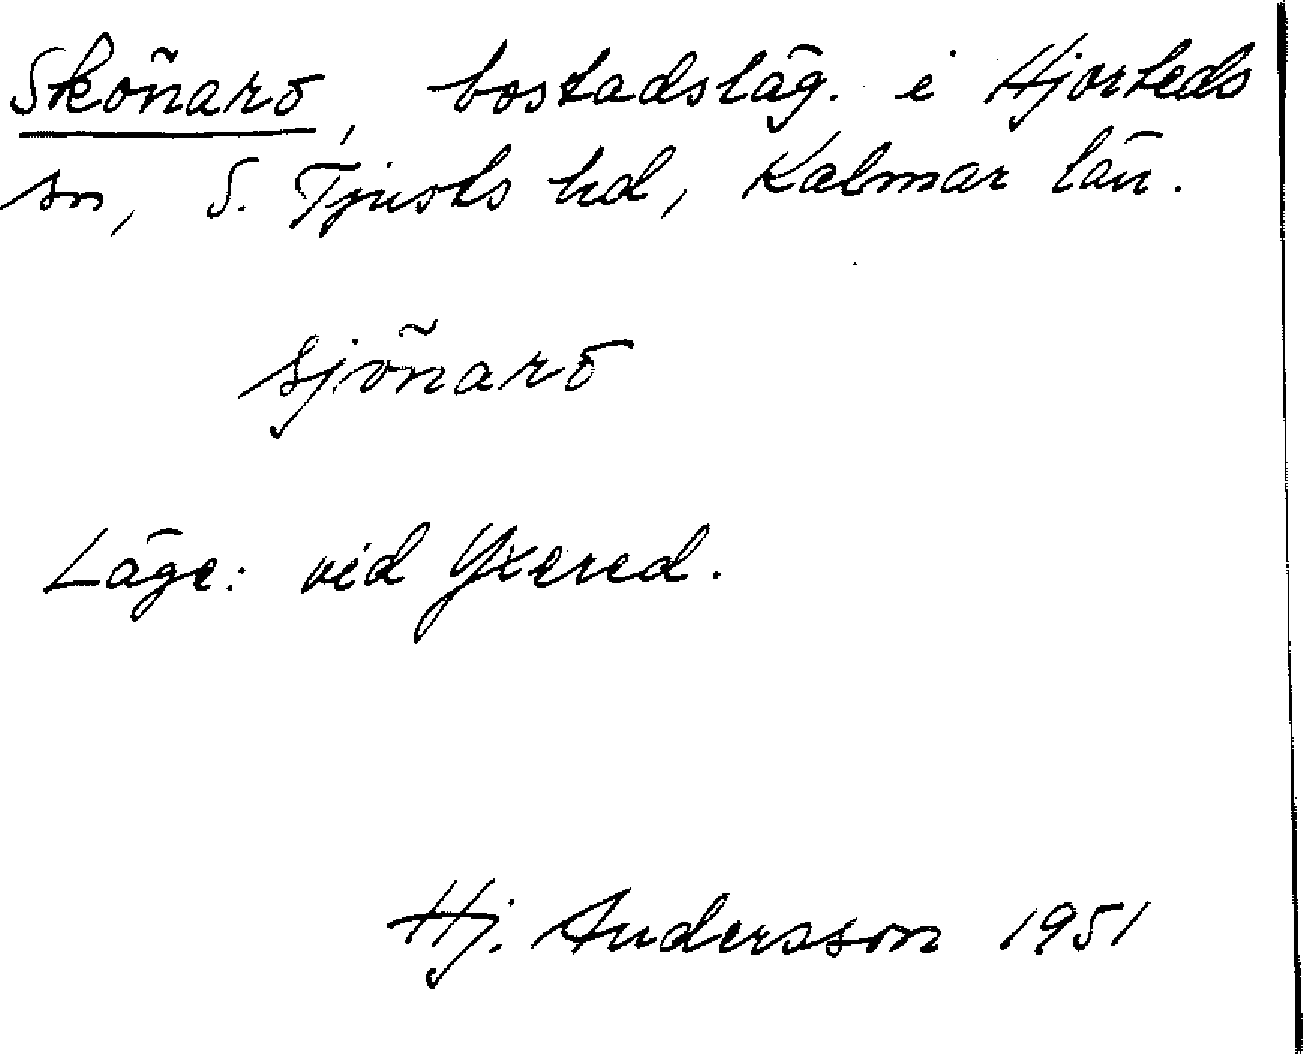 Skönarö, bostadsläg. i Hjorteds
sn, S. Tjusts hd, Kalmar län.
sjönarö
Läge: vid Yxered.
Hj. Andersson 1951